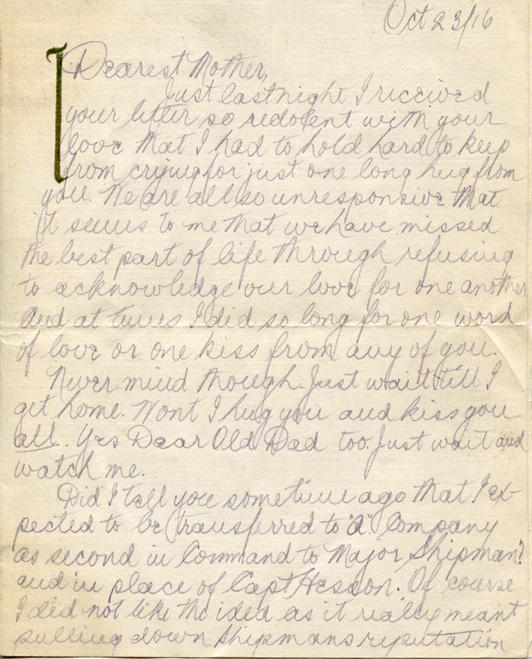 Oct 23/16
Dearest Mother,
Just last night I received
your letter so redolent with your
love that I had to hold hard to keep
from crying for just one long hug from
you. We are all so unresponsive that
it seems to me that we have missed
the best part of life through refusing
to acknowledge our love for one another
And at times I did so long for one word
of love or one kiss from any of you.
Never mind though. Just wait till I
get home. Wont I hug you and kiss you
all. Yes Dear Old Dad too. Just wait and
watch me.
Did I tell you sometime ago that I ex-
pected to be transferred to "d" Company
as second in Command to Major Shipman?
and in place of Capt Hesson. Of course
I did not like the idea as it really meant
pulling down Shipmans reputation